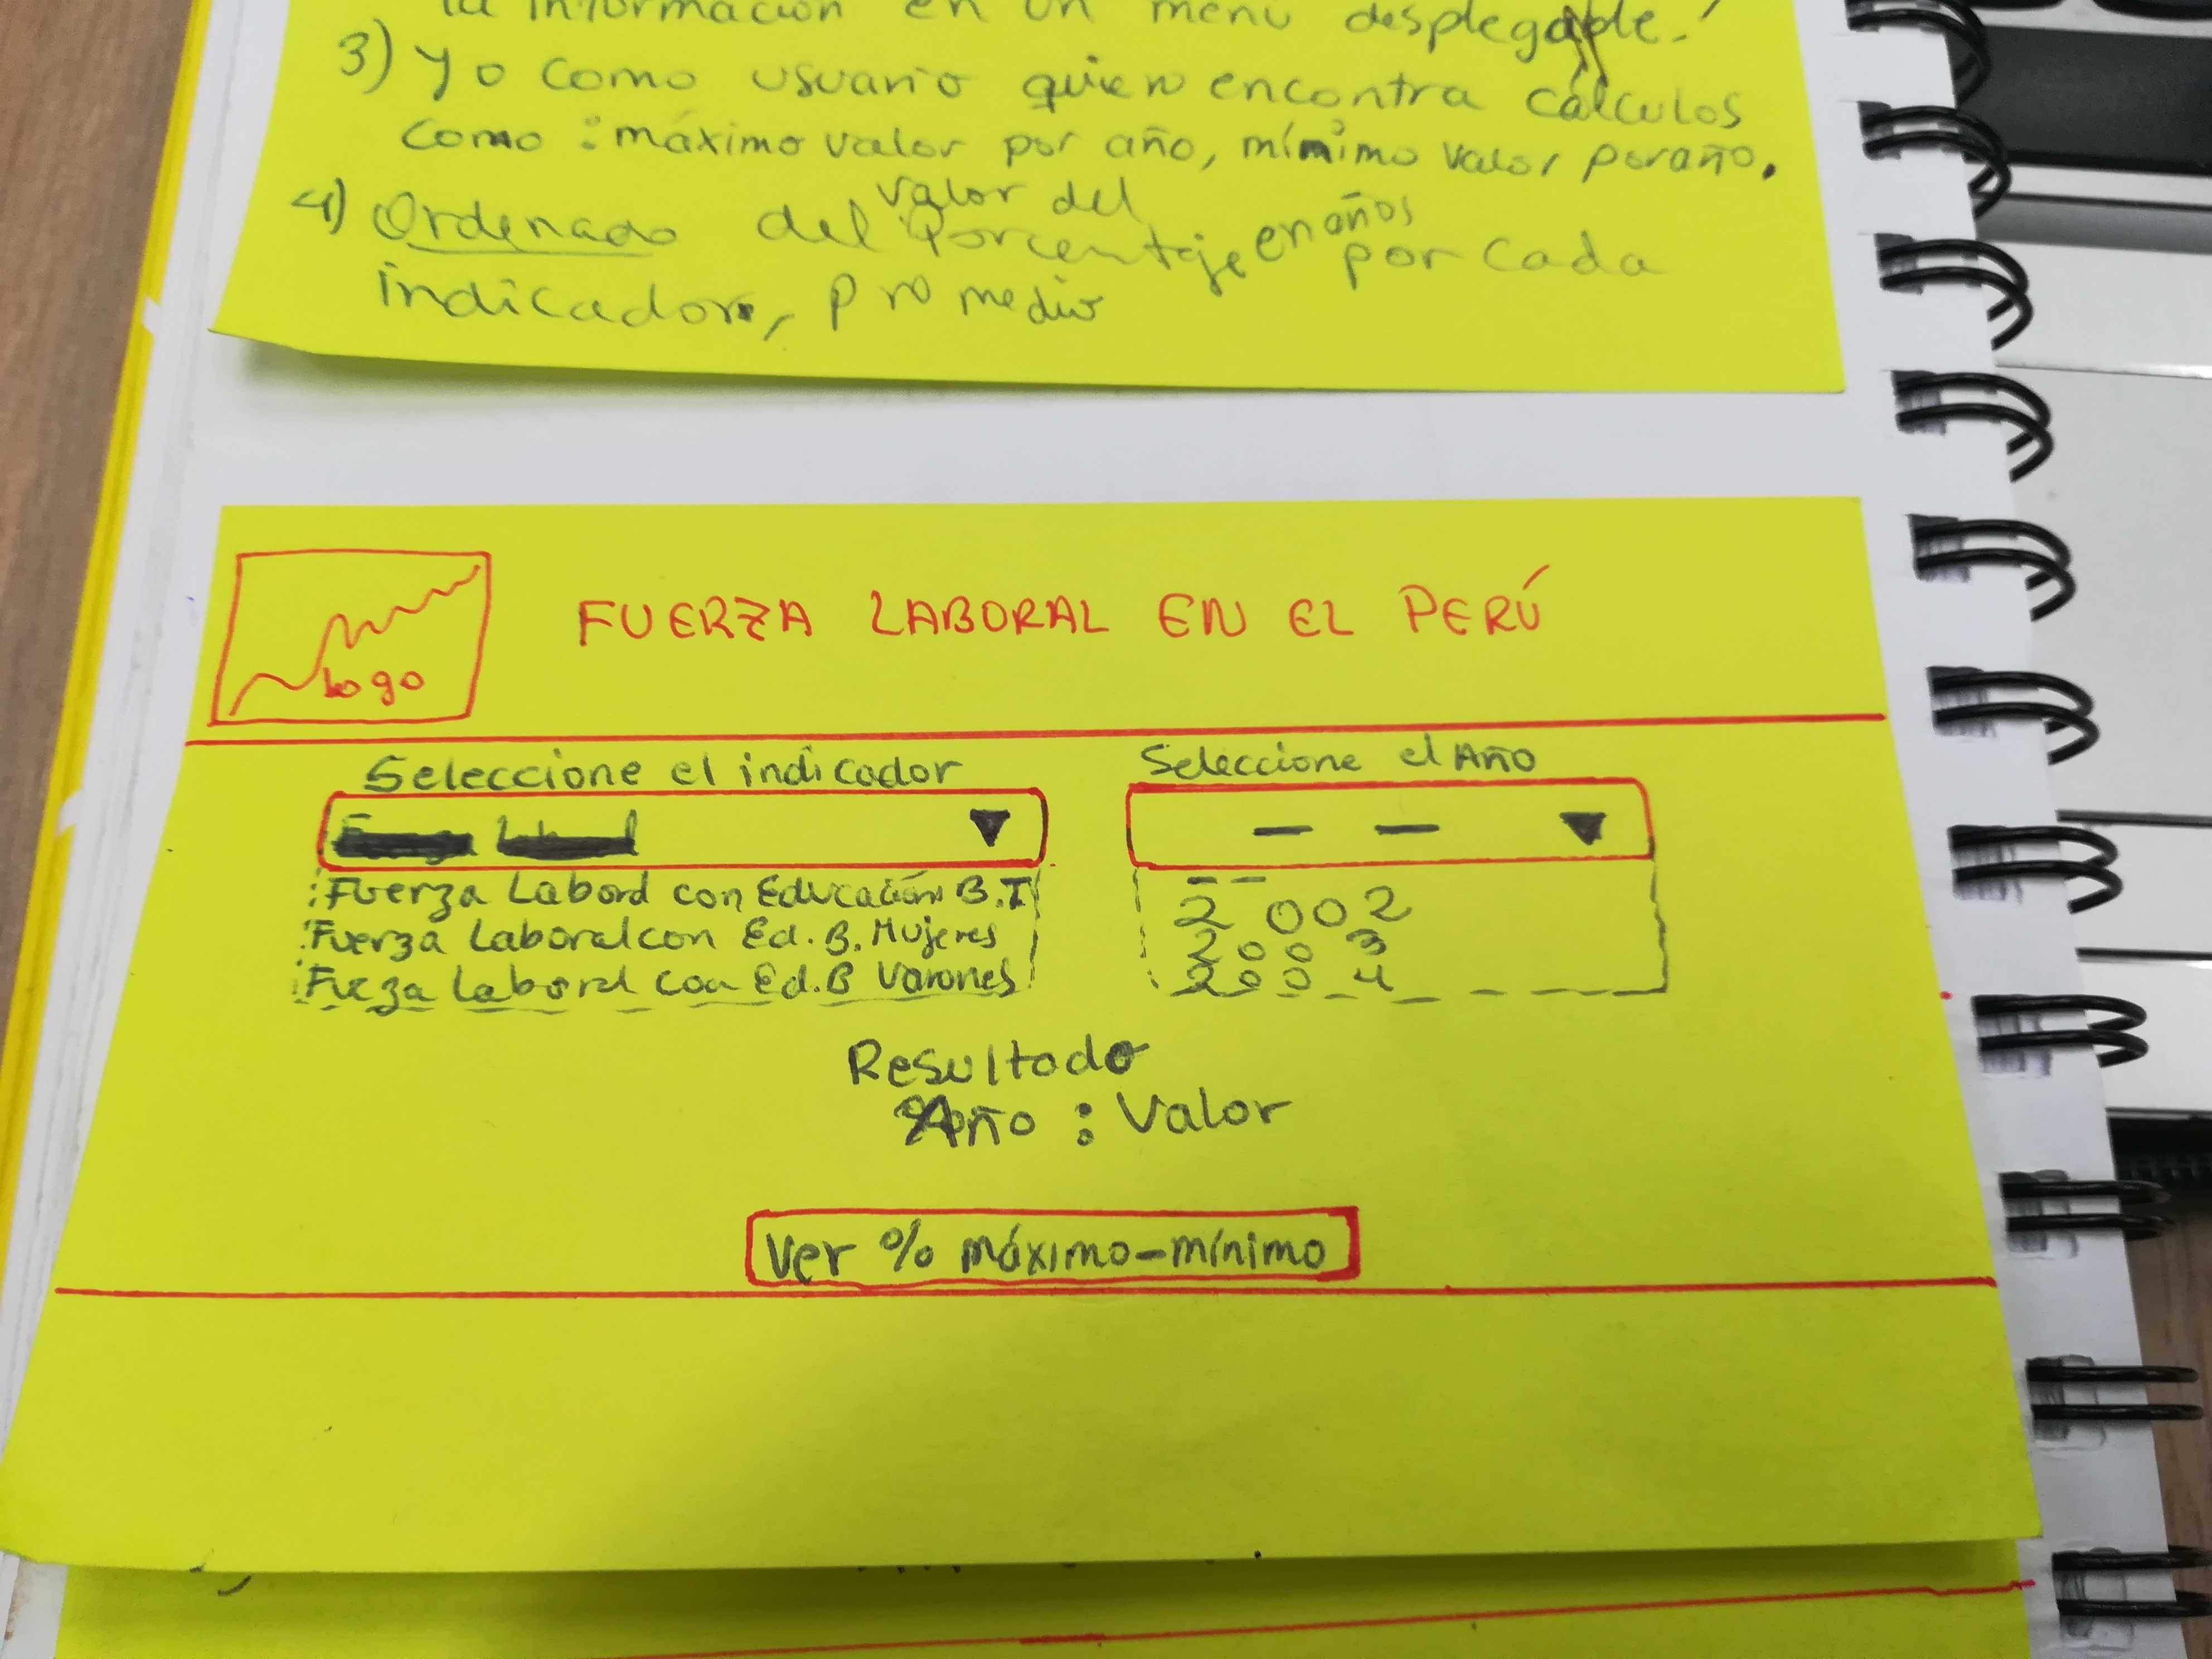 la información en un menú desplegable.
3) Yo como usuario quiero encontra cálculos
como : máximo valor por año, mínimo valor por año.
4) Ordenado del valor del porcentaje en años por cada
indicador, promedio
logo
FUERZA LABORAL EN EL PERÚ
Seleccione el indicador
Seleccione el Año
Fuerza Laboral con Educación B.I
Fuerza Laboral con Ed. B. Mujeres
Fueza Laboral con Ed. B Varones
2002
2003
2004
Resultado
Año : Valor
Ver % máximo-mínimo